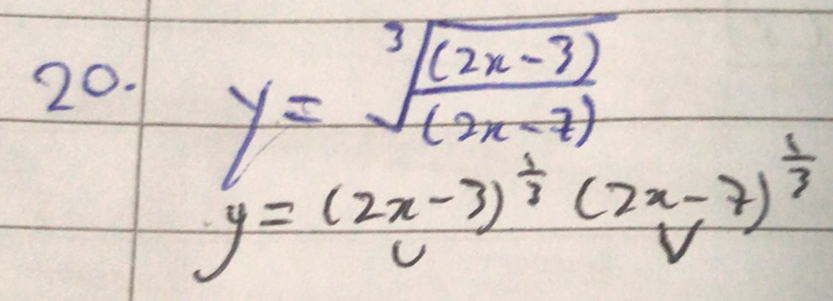 20. y = ∛((2x-3)/(2x-7))
y = (2x-3)^(1/3) (2x-7)^(1/3)
u v